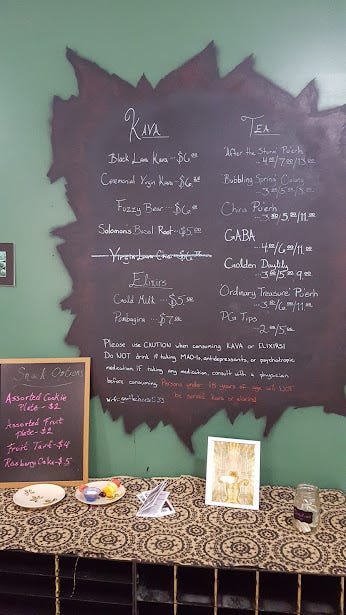 Kava
Black Lava Kava---$6.00
Ceremonial Virgin Kava---$6.00
Fuzzy Bear---$6.00
Solomon's Basal Root---$5.00
Virgin Lava Chai $6
Elixirs
Gold Milk---$5.00
Pombagira---$7.00
Tea
'After the Storm' Pu'erh
...4.00/7.00/13.00
Bubbling Spring
China Pu'erh
5.00/11.00
GABA
...4.00/6.00/11.00
Golden Daylily
...3.00/5.00/9.00
'Ordinary Treasure' Pu'erh
...3.00/6.00/11.00
PG Tips
...2.00/5.00
Please use CAUTION when consuming KAVA or ELIXIRS!
Do NOT drink if taking MAO-Is, antidepressants, or psychotropic
medication. If taking any medication, consult with a physician
before consuming. Persons under 18 years of age will NOT
be served kava or
wifi:
Snack Options
Assorted Cookie
Plate - $2
Assorted Fruit
plate - $2
Fruit Tart - $4
Rasberry Cake - $5